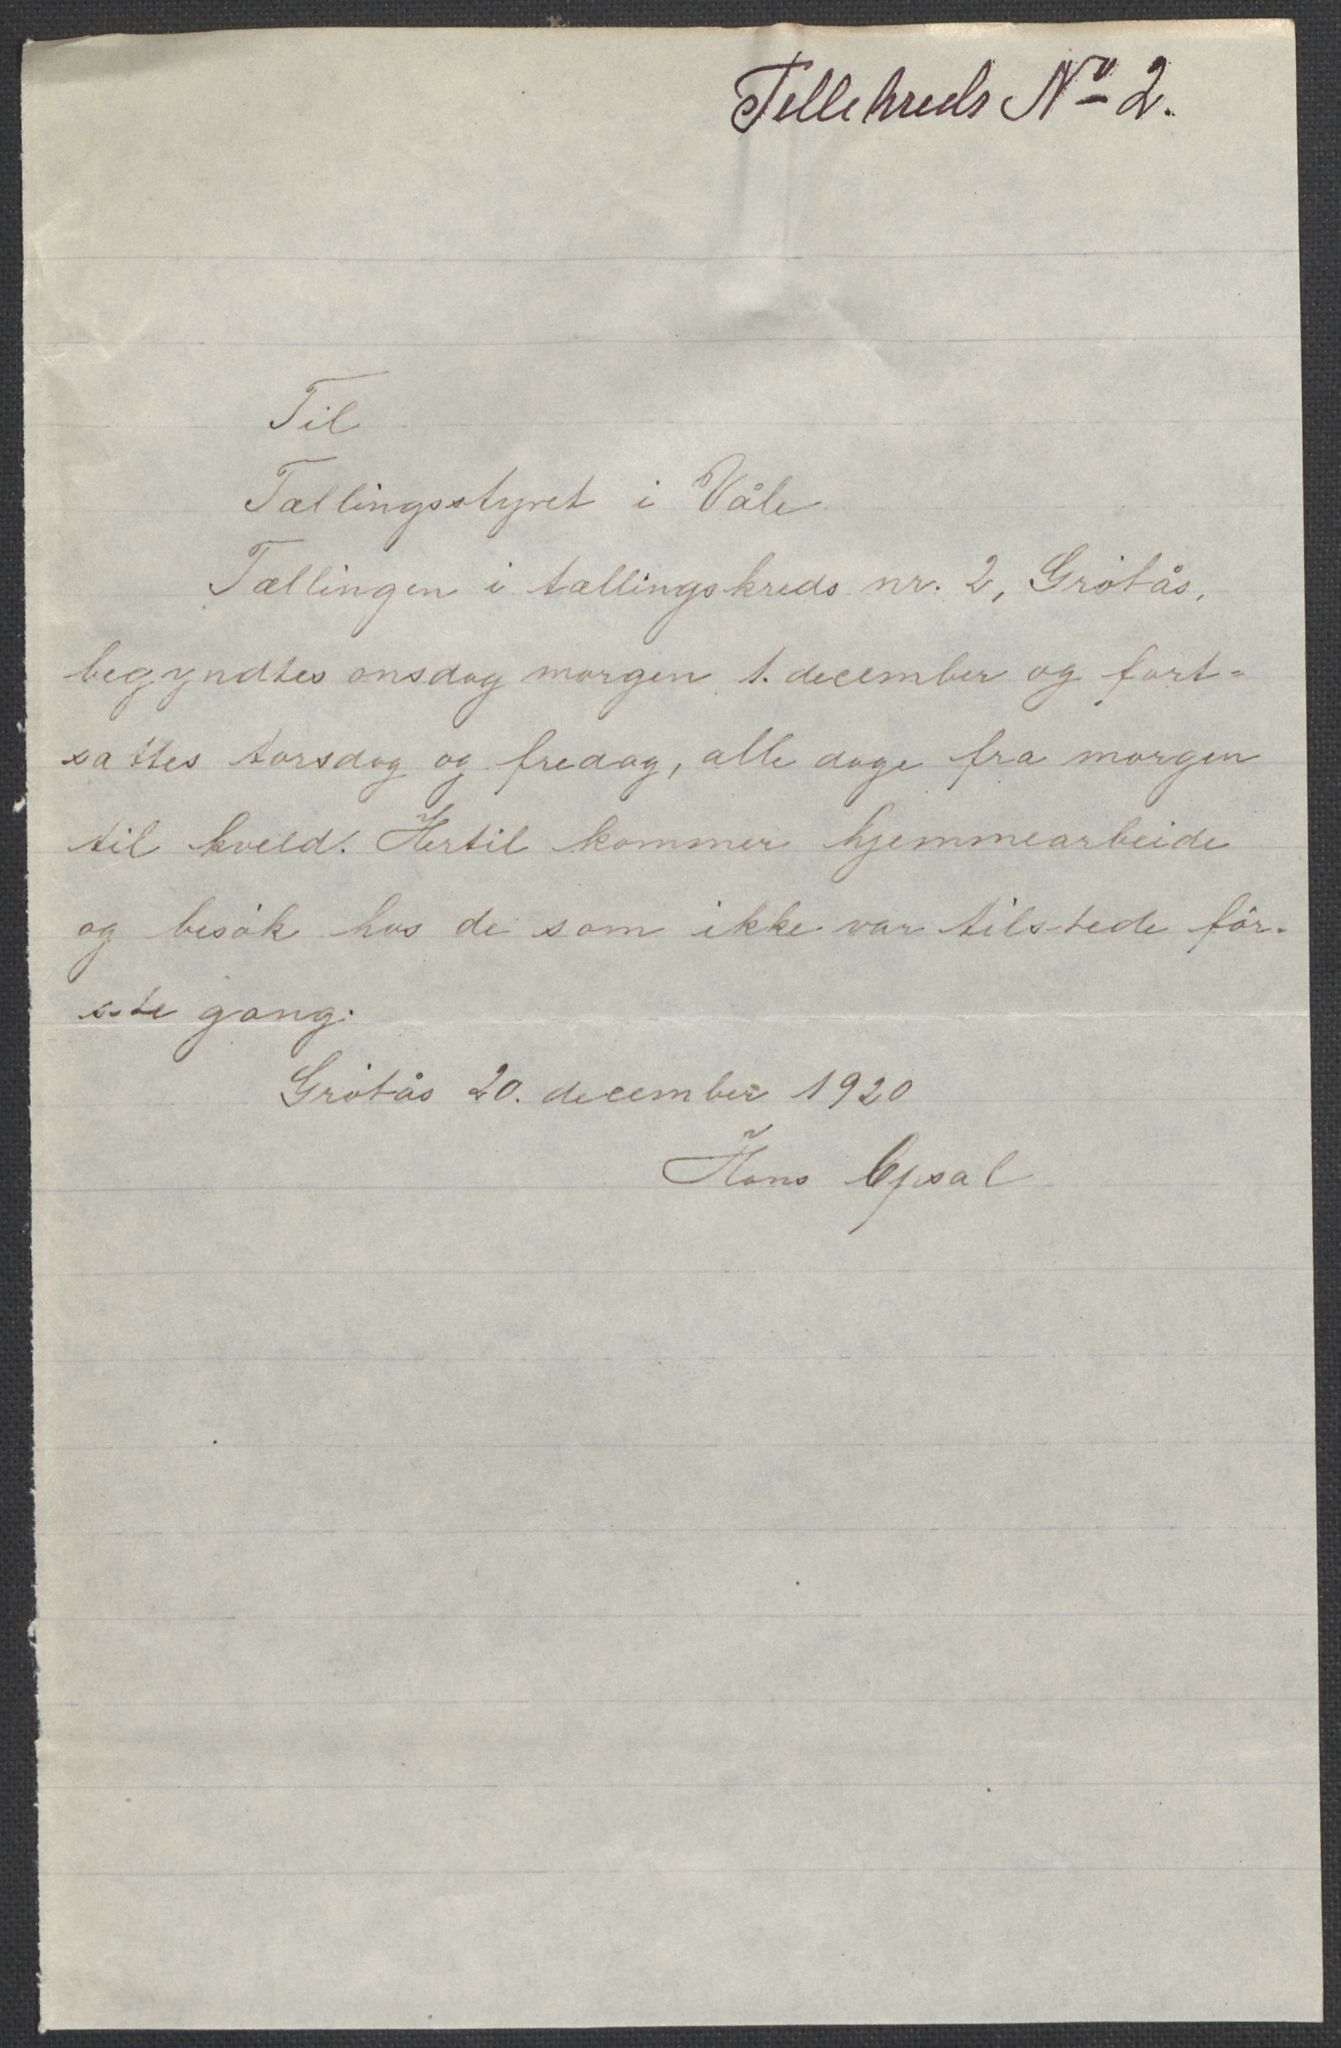 Tellekreds No 2.
Til
Tællingsstyret i Våle
Tællingen i tællingskreds nr. 2, Grötås,
begyndtes onsdag morgen 1. december og fort-
sattes torsdag og fredag, alle dage fra morgen
til kveld. Hertil kommer hjemmearbeide
og besök hos de som ikke var tilstede för-
ste gang.
Grötås 20. december 1920
Hans Opsal